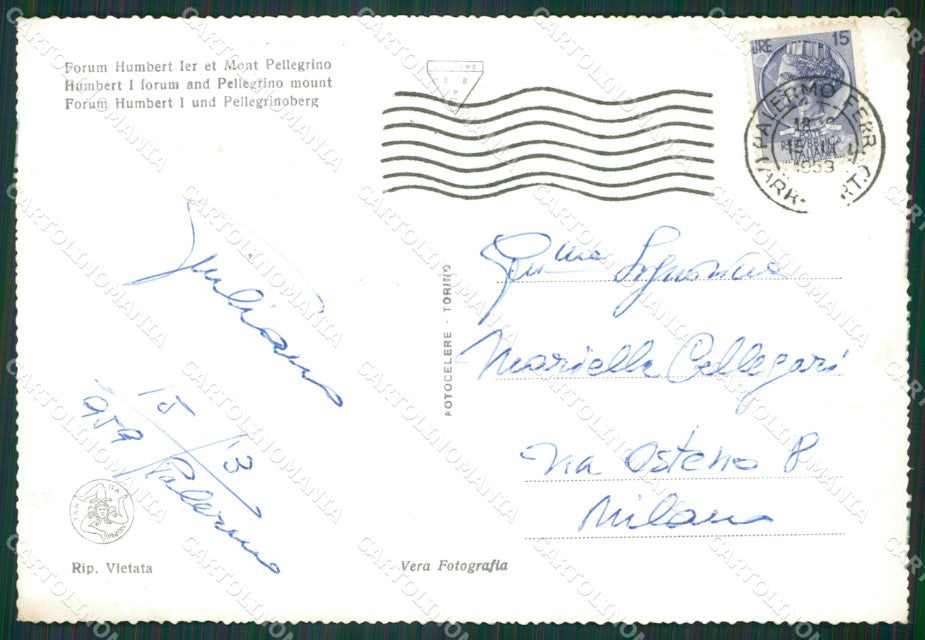 Forum Humbert Ier et Mont Pellegrino
Humbert I forum and Pellegrino mount
Forum Humbert I und Pellegrinoberg
LIRE 15
PALERMO FERR.
1953
ITALIANA
Giuliano
15/13
959 Palermo
FOTOCELERE - TORINO
Gen.ma Signorina
Mariella Callegari
Via Osteno 8
Milano
Rip. Vietata
Vera Fotografia
CARTOLINOMANIA